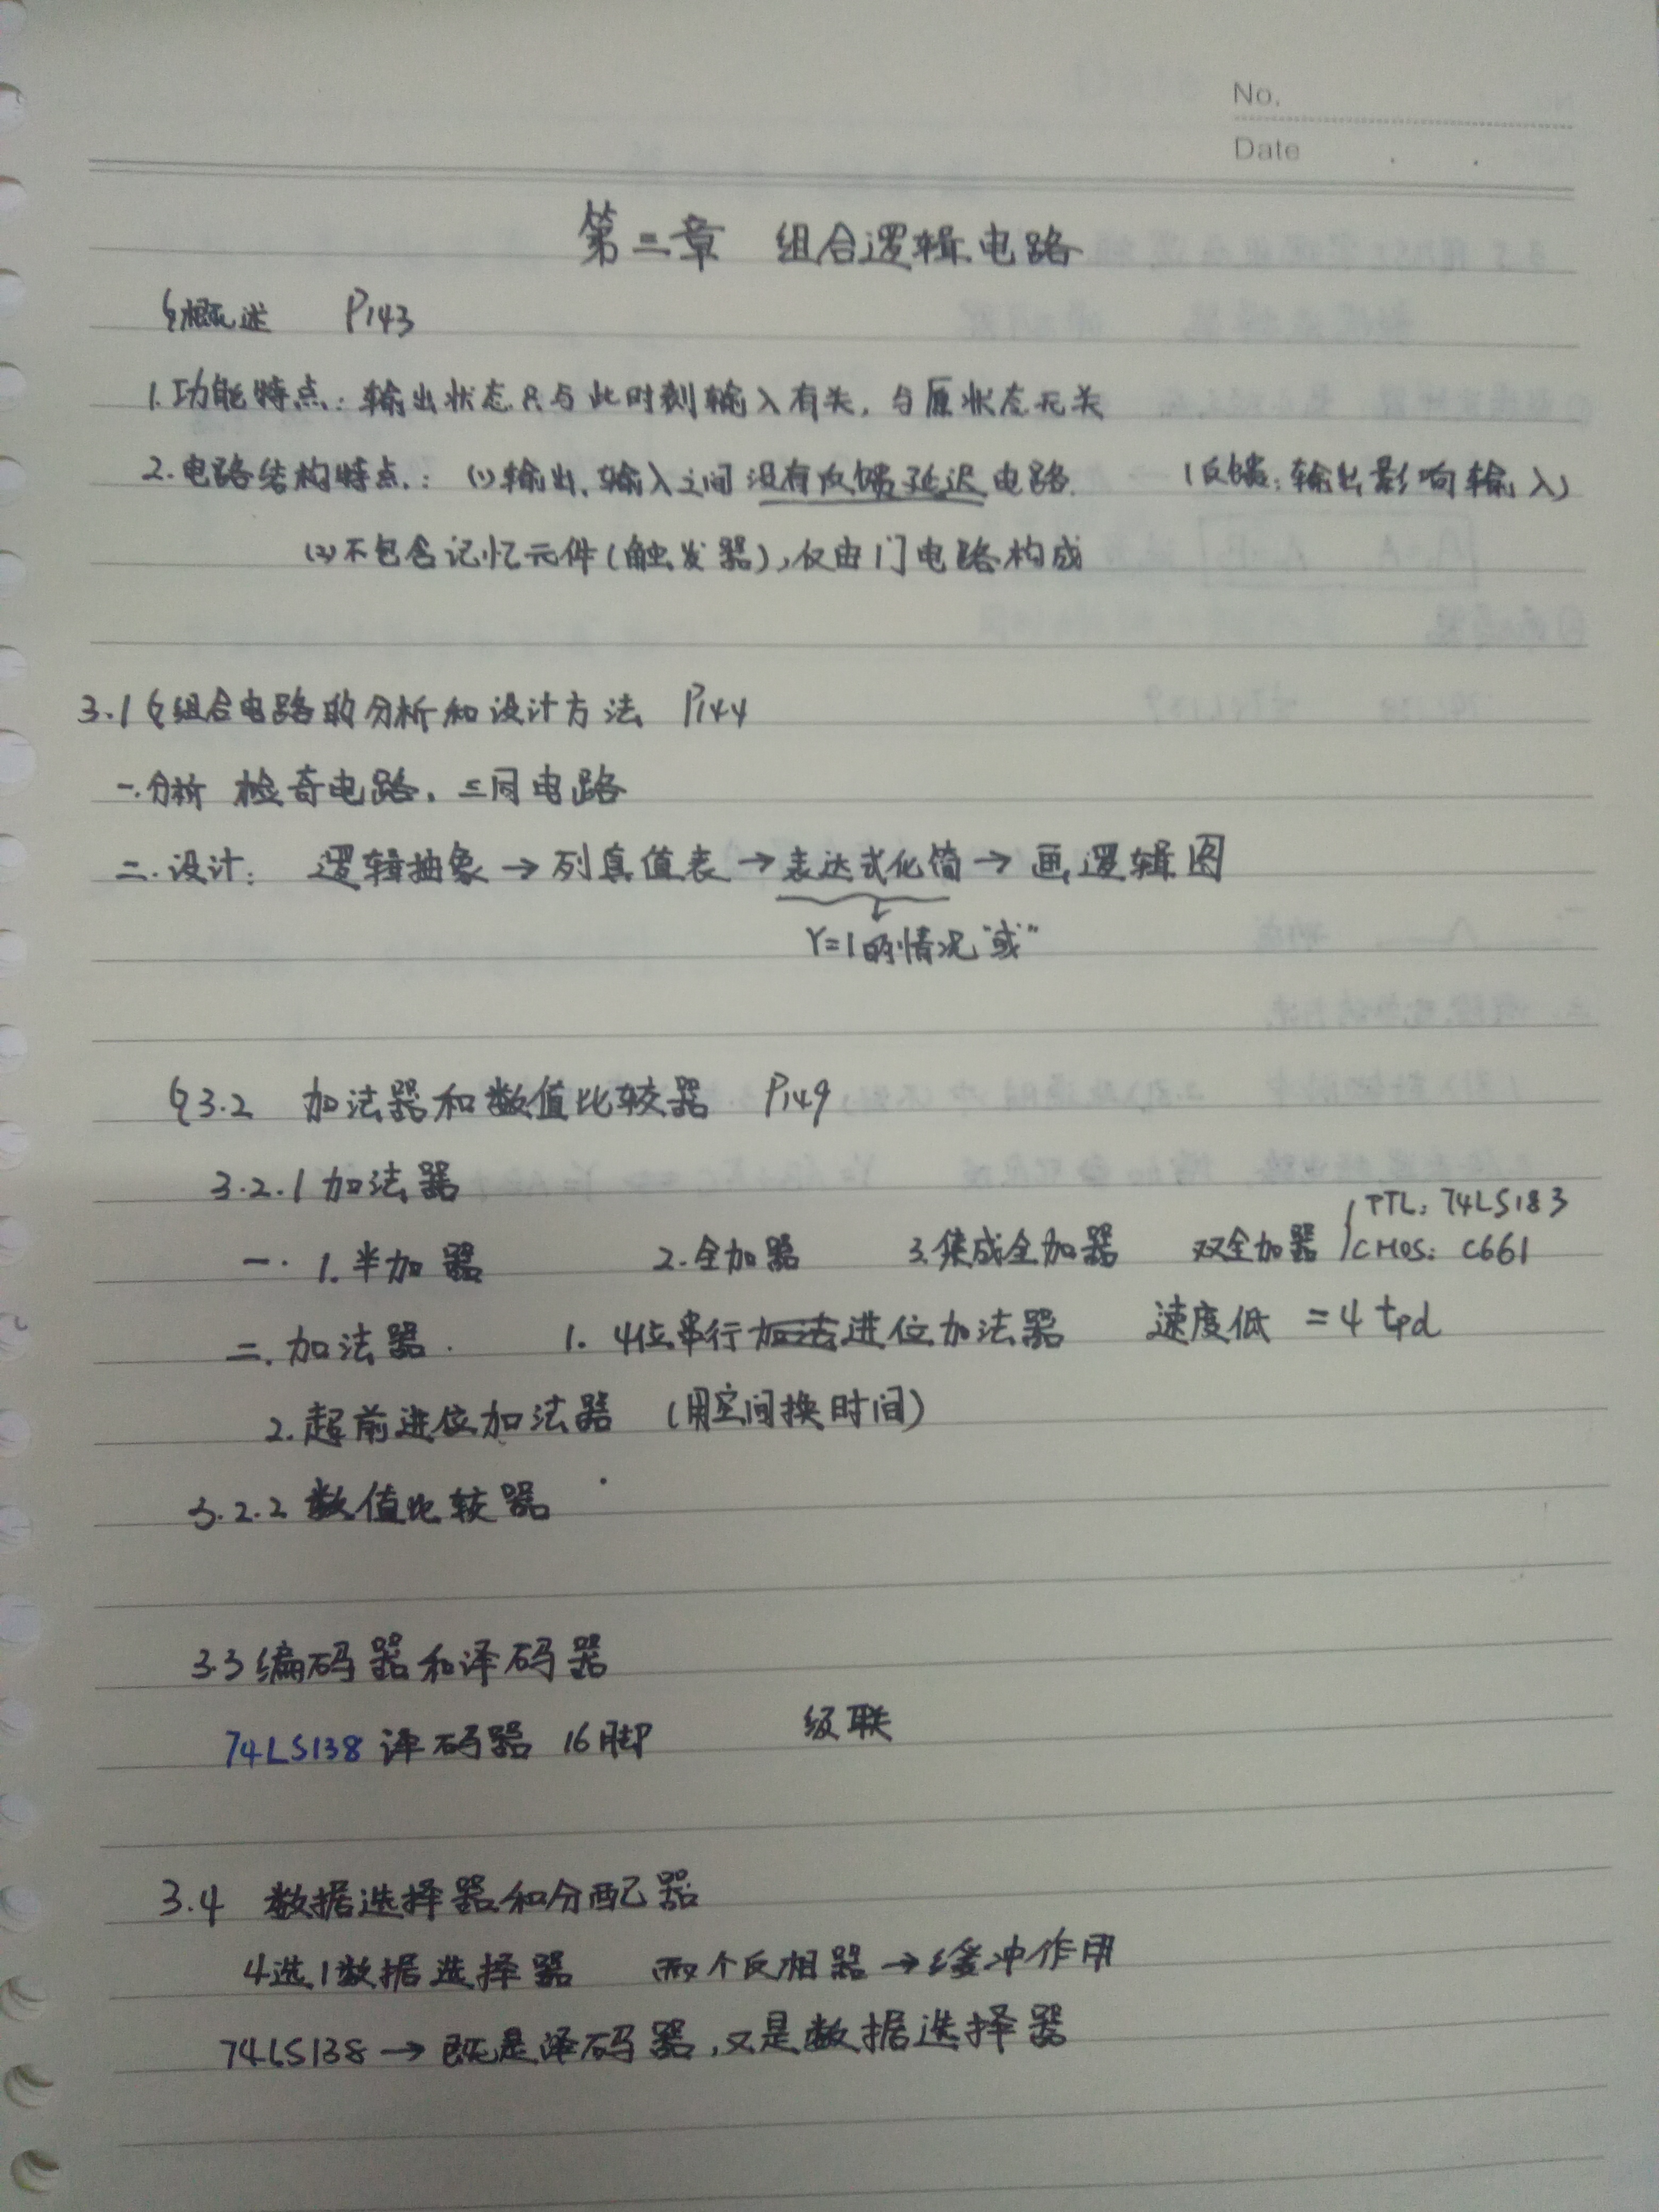 No.
Date
第三章 组合逻辑电路
§概述 P143
1.功能特点:输出状态只与此时刻输入有关,与原状态无关
2.电路结构特点:(1)输出、输入之间没有反馈延迟电路 (反馈:输出影响输入)
(2)不包含记忆元件(触发器),仅由门电路构成
3.1§组合电路的分析和设计方法 P144
一.分析 检奇电路,电路
二.设计: 逻辑抽象→列真值表→表达式化简→画逻辑图
Y=1的情况"或"
§3.2 加法器和数值比较器 P149
3.2.1加法器
一.1.半加器 2.全加器 3.集成全加器 双全加器 { TTL: 74LS183
CMOS: C661
二.加法器. 1. 4位串行加法进位加法器 速度低 =4tpd
2.超前进位加法器 (用空间换时间)
3.2.2 数值比较器
3.3编码器和译码器
74LS138 译码器 16脚 级联
3.4 数据选择器和分配器
4选1数据选择器 两个反相器→缓冲作用
74LS138→既是译码器,又是数据选择器